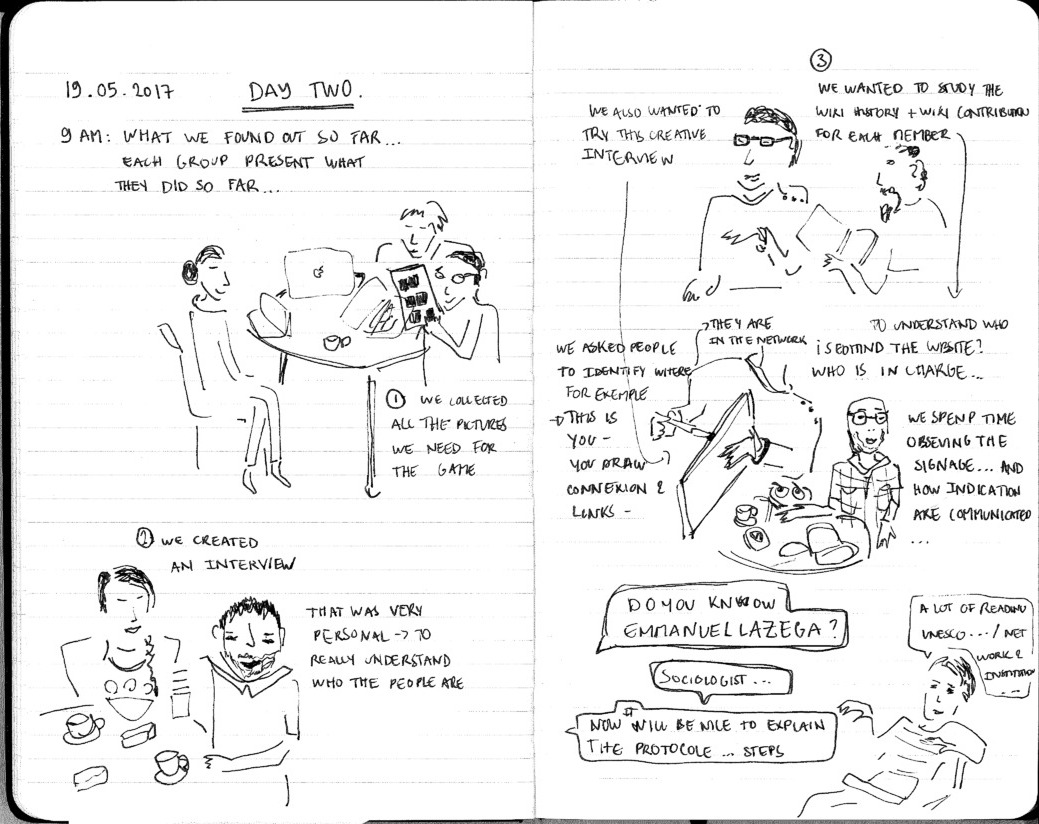 19.05.2017 DAY TWO.
9 AM: WHAT WE FOUND OUT SO FAR...
EACH GROUP PRESENT WHAT
THEY DID SO FAR...
① WE COLLECTED
ALL THE PICTURES
WE NEED FOR
THE GAME
② WE CREATED
AN INTERVIEW
THAT WAS VERY
PERSONAL -> TO
REALLY UNDERSTAND
WHO THE PEOPLE ARE
WE ALSO WANTED TO
TRY THIS CREATIVE
INTERVIEW
③
WE WANTED TO STUDY THE
WIKI HISTORY + WIKI CONTRIBUTION
FOR EACH MEMBER
WE ASKED PEOPLE
TO IDENTIFY WHERE
FOR EXEMPLE
THIS IS
YOU -
YOU DRAW
CONNEXION &
LINKS -
THEY ARE
IN THE NETWORK
TO UNDERSTAND WHO
IS EDITIND THE WBSITE?
WHO IS IN CHARGE...
WE SPENP TIME
OBSEVING THE
SIGNAGE... AND
HOW INDICATION
ARE COMMUNICATED
...
DO YOU KNWOW
EMMANUEL LAZEGA?
SOCIOLOGIST...
NOW IT WILL BE NICE TO EXPLAIN
THE PROTOCOLE ... STEPS
A LOT OF READING
UNESCO.../ NET
WORK &
INSTITUTION
...